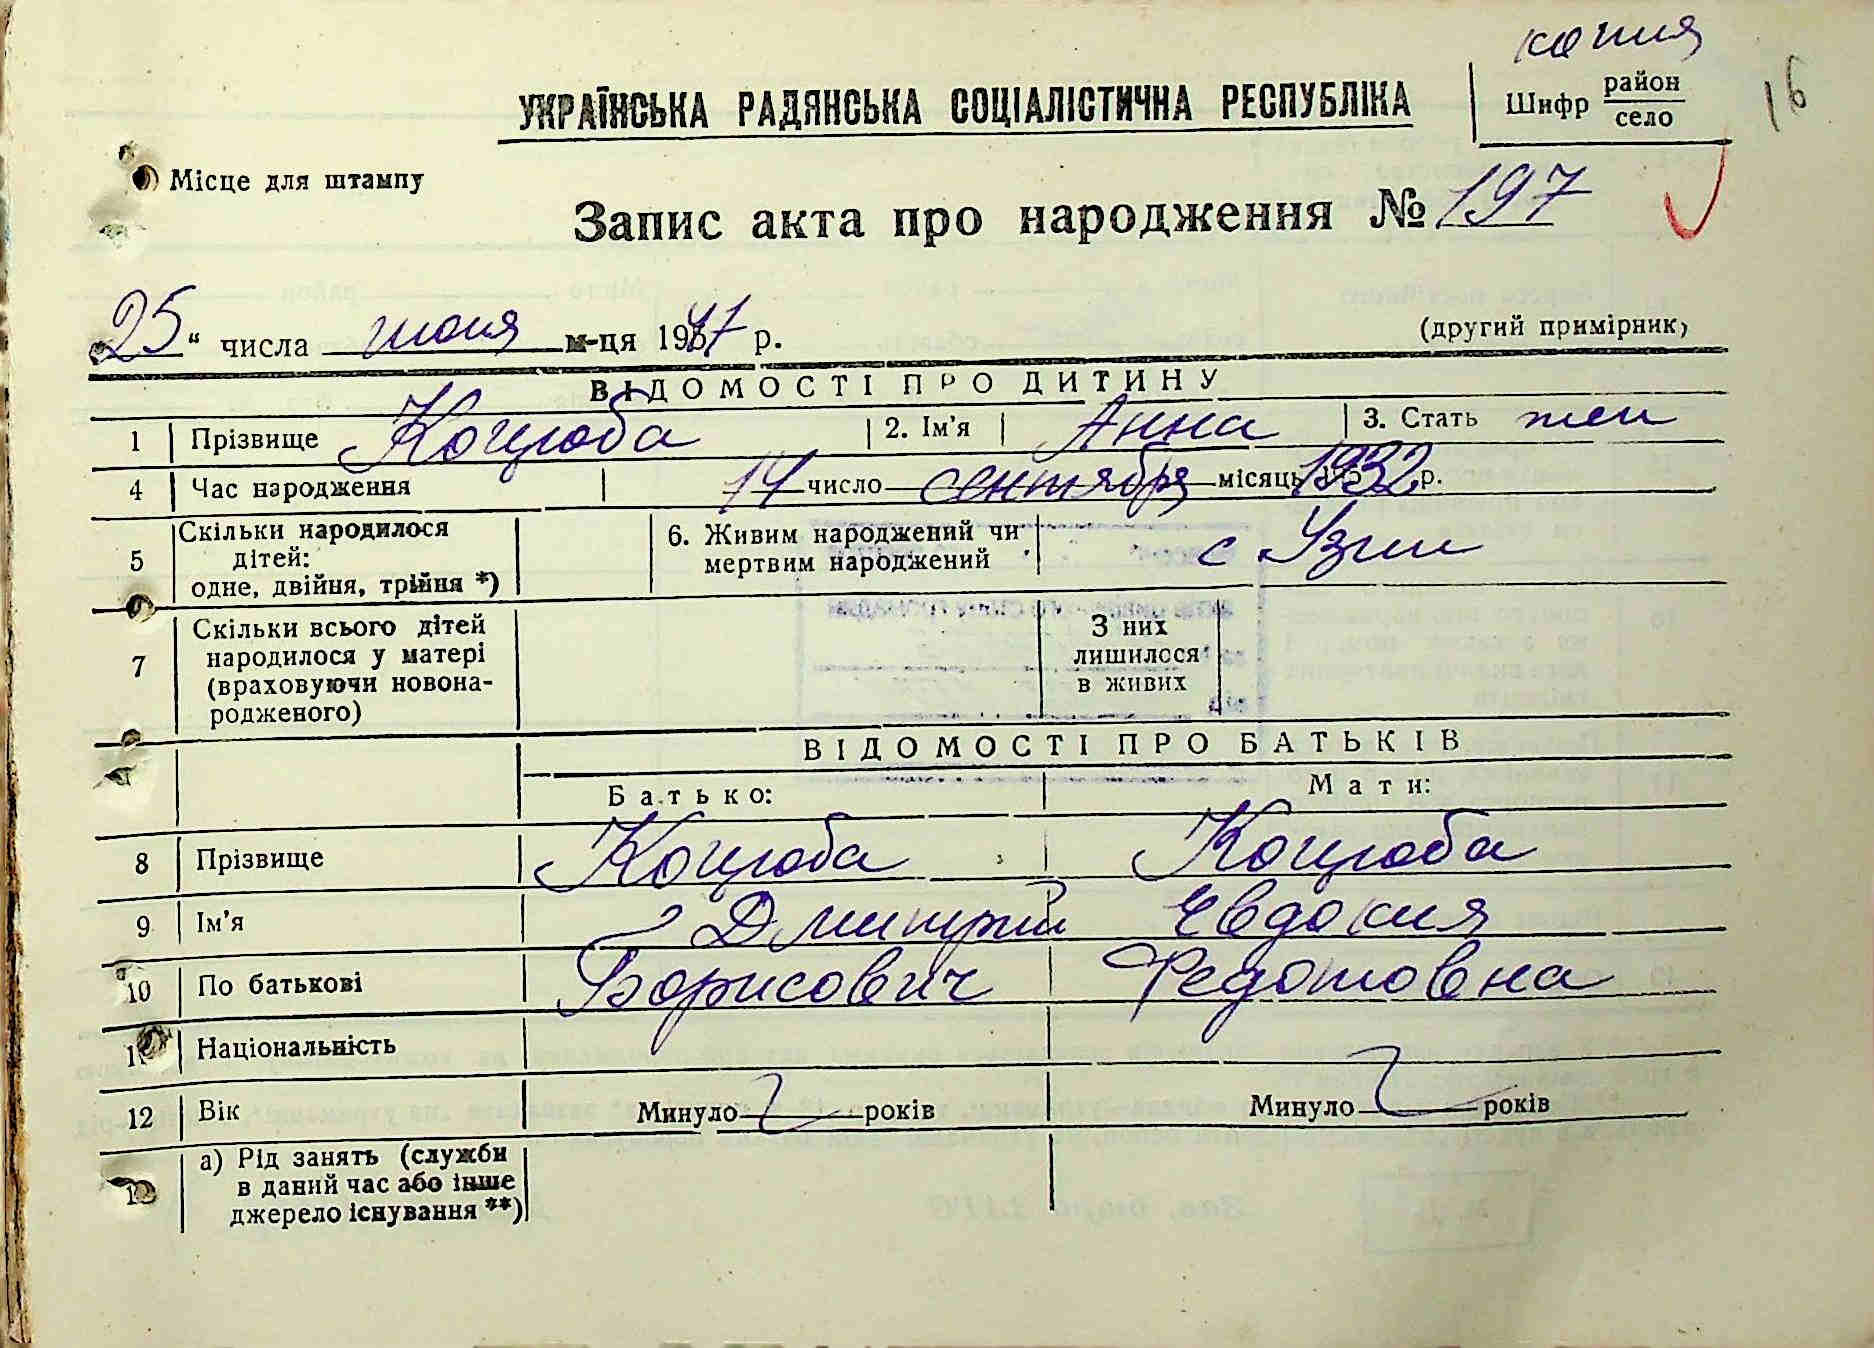 копия
УКРАЇНСЬКА РАДЯНСЬКА СОЦІАЛІСТИЧНА РЕСПУБЛІКА
Шифр район
село
16
Місце для штампу
Запис акта про народження № 197
25 " числа июля м-ця 1947 р.
(другий примірник)
ВІДОМОСТІ ПРО ДИТИНУ
1 Прізвище Коцюба 2. Ім'я Анна 3. Стать жен
4 Час народження 14 число сентября місяць 1932 р.
5 Скільки народилося дітей: одне, двійня, трійня *) 6. Живим народжений чи мертвим народжений с Узин
7 Скільки всього дітей народилося у матері (враховуючи новонародженого) З них лишилося в живих
ВІДОМОСТІ ПРО БАТЬКІВ
Батько: Мати:
8 Прізвище Коцюба Коцюба
9 Ім'я Дмитрий Евдокия
10 По батькові Борисович Федотовна
11 Національність
12 Вік Минуло років Минуло років
13 а) Рід занять (служби в даний час або інше джерело існування **)